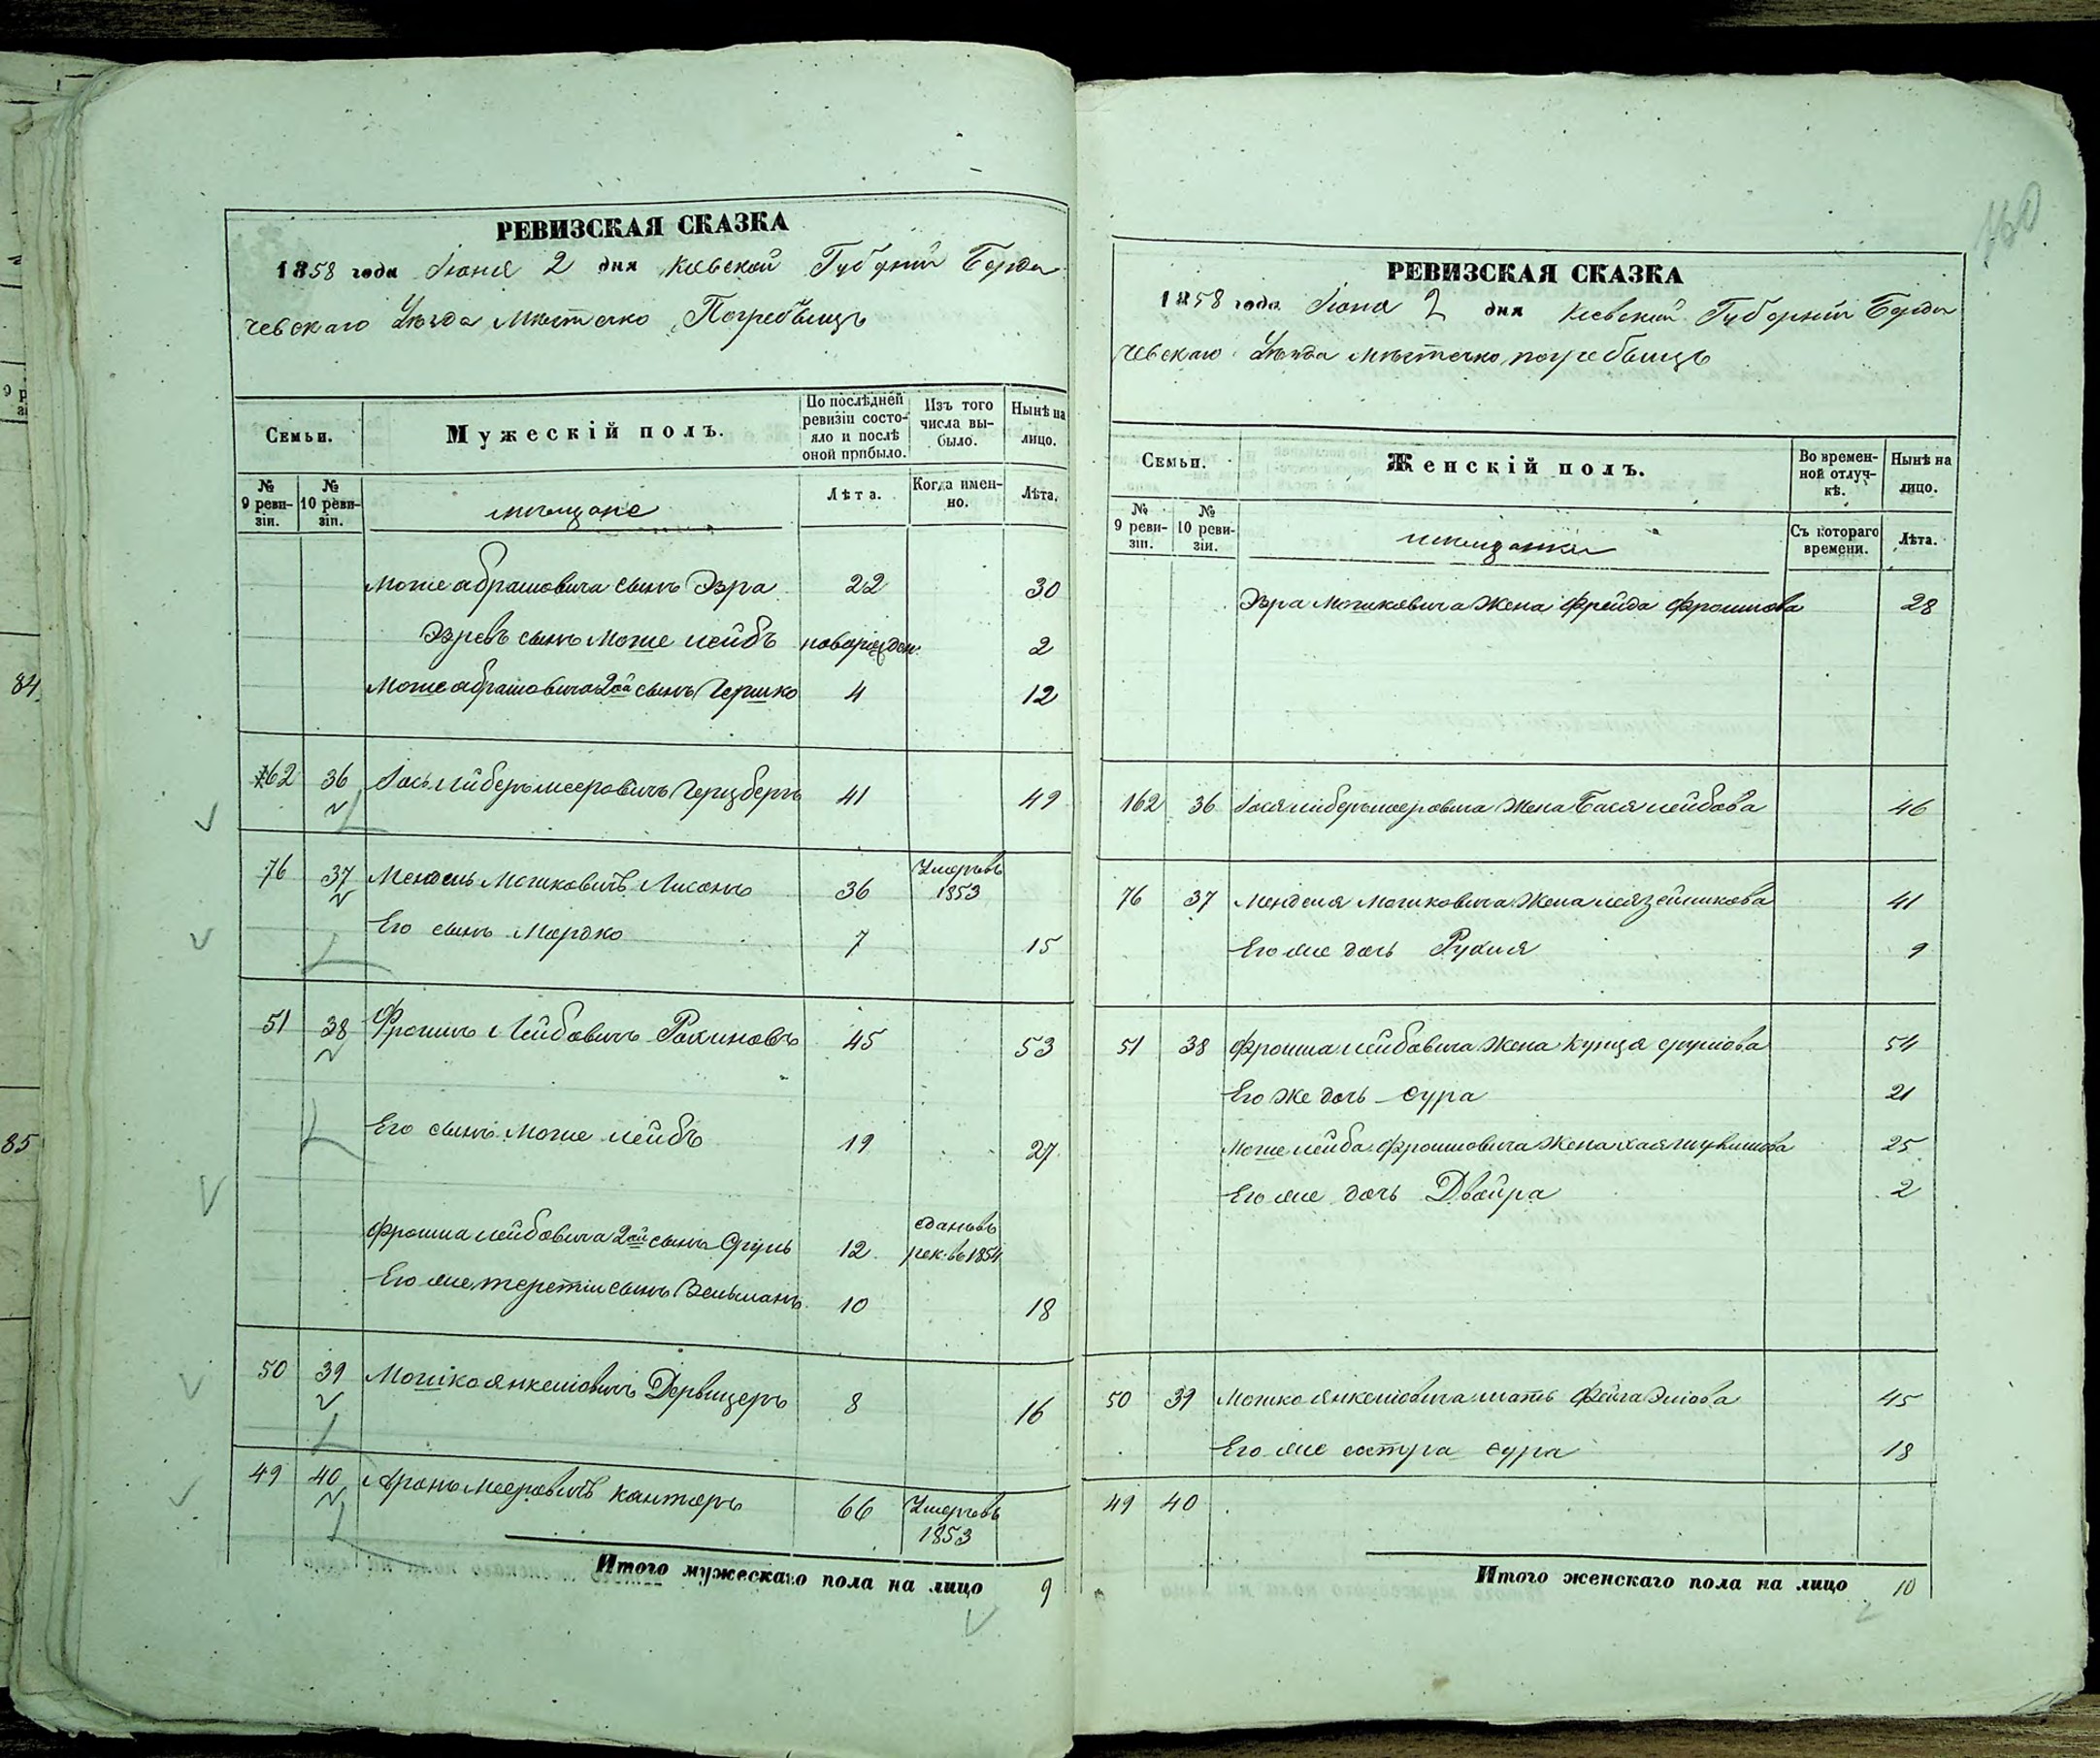 РЕВИЗСКАЯ СКАЗКА
1858 года Іюня 2 дня Кіевской Губерніи Берди
чевскаго Уѣзда Мѣстечко Погребыщъ
Семьи.
Мужескій полъ.
По послѣдней ревизіи состояло и послѣ оной прибыло.
Изъ того числа выбыло.
Нынѣ на лицо.
№ 9 ревизіи.
№ 10 ревизіи.
мещане
Лѣта.
Когда именно.
Лѣта.
Мошке абрамовича сынъ Эзра 22 30
Эзревъ сынъ Мошке лейбъ новорожден. 2
Мошке абрамовича 2ой сынъ Гершко 4 12
162 36 Іось либеръ мееровичъ Герцберъ 41 49
76 37 Мендель Мошковичъ Лисанъ 36 Умеръ въ 1853
Его сынъ Мордко 7 15
51 38 Фроимъ Лейбовичъ Рахиновъ 45 53
Его сынъ Моше лейбъ 19 27
Фроима лейбовича 2ой сынъ Сруль 12 сданъ въ рек. въ 1854
Его же третіи сынъ Зельманъ 10 18
50 39 Мошко янкеліовичъ Дервицеръ 8 16
49 40 Аронъ Мееровичъ канторъ 66 Умеръ въ 1853
Итого мужескаго пола на лицо 9
150
РЕВИЗСКАЯ СКАЗКА
1858 года Іюня 2 дня Кіевской Губерніи Берди
чевскаго Уѣзда мѣстечко погребыщъ
Семьи.
Женскій полъ.
Во временной отлучкѣ.
Нынѣ на лицо.
№ 9 ревизіи.
№ 10 ревизіи.
мещанки
Съ котораго времени.
Лѣта.
Эзра Мошковича Жена Фрейда Фроимова 28
162 36 Іося либеръ мееровича Жена Бася лейбова 46
76 37 Менделя Мошковича Жена лея зейликова 41
Его же дочь Рухля 9
51 38 Фроима лейбовича Жена Кунця срулюва 54
Его же дочь Сура 21
Моше лейба Фроимовича Жена хая 25
Его же дочь Двойра 2
50 39 Мошко янкеліовича мать Фейга Эліова 45
Его же сестра сура 18
49 40
Итого женскаго пола на лицо 10
84
85